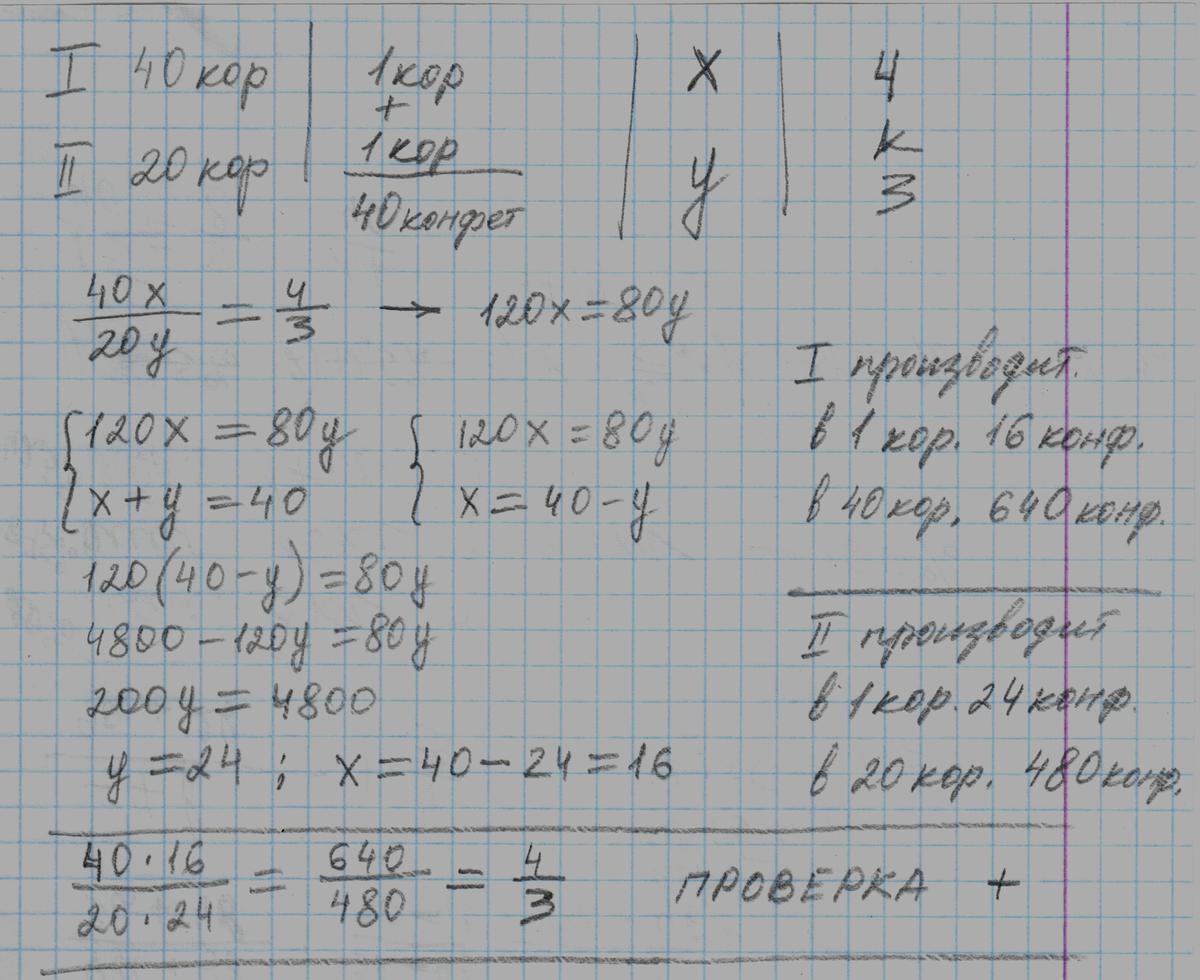 I 40 кор | 1 кор | x | 4
+ к
II 20 кор | 1 кор | y | 3
40 конфет
40x/20y = 4/3 → 120x = 80y
{120x = 80y {120x = 80y
{x + y = 40 {x = 40 - y
120(40 - y) = 80y
4800 - 120y = 80y
200y = 4800
y = 24 ; x = 40 - 24 = 16
I производит.
в 1 кор. 16 конф.
в 40 кор. 640 конф.
II производит
в 1 кор. 24 конф.
в 20 кор. 480 конф.
40·16/20·24 = 640/480 = 4/3 ПРОВЕРКА +